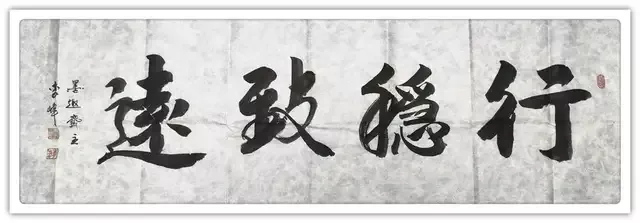 行穩致遠
墨趣齋主
李峰